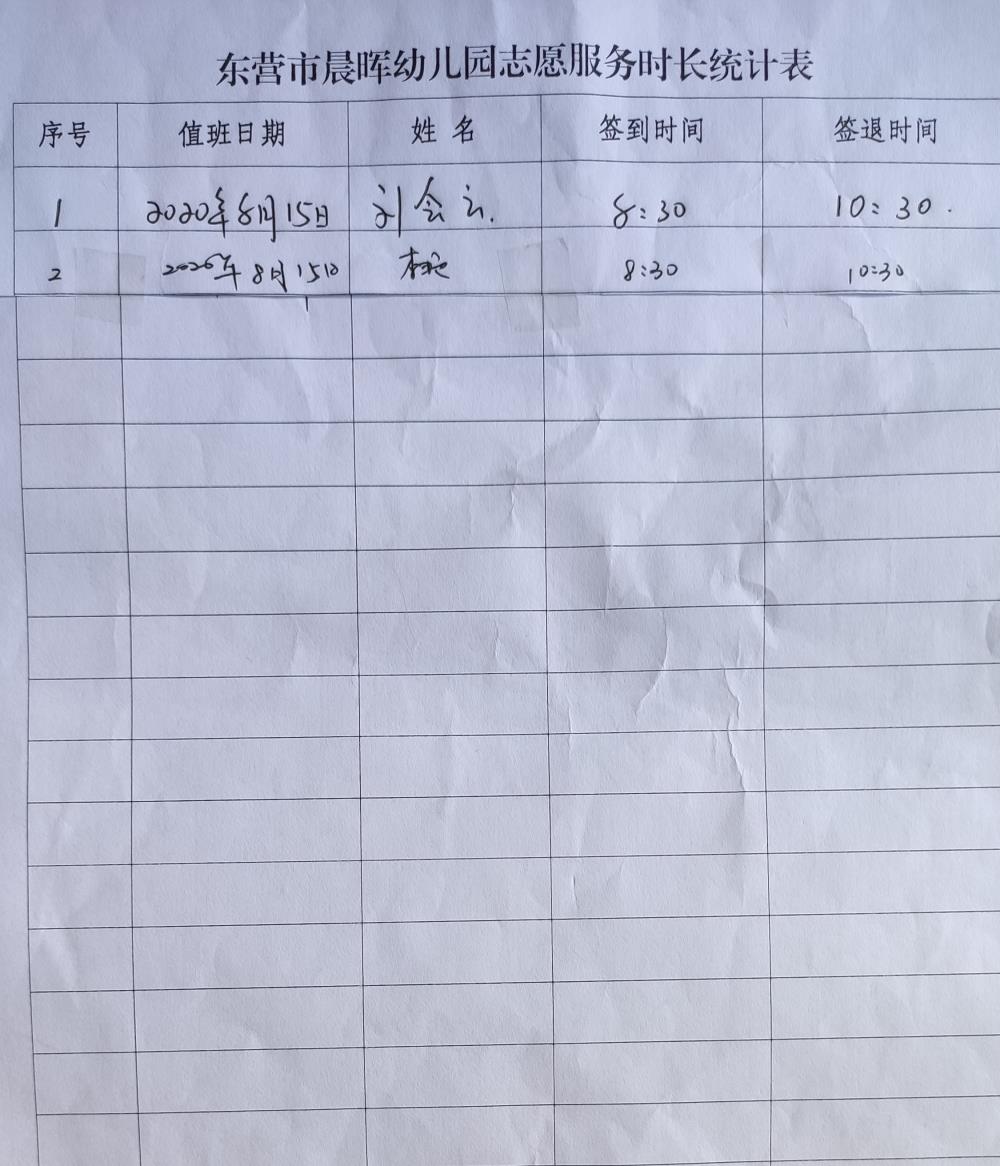 东营市晨晖幼儿园志愿服务时长统计表
序号 值班日期 姓名 签到时间 签退时间
1 2020年8月15日 刘会云. 8:30 10:30.
2 2020年8月15日 8:30 10:30